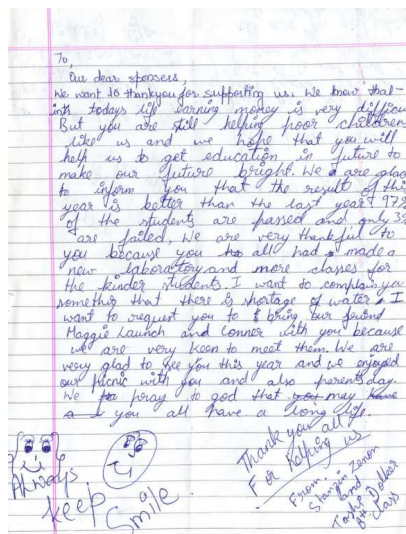 To,
Our dear sponsers,
We want to thankyou for supporting us. We know that
inth todays life earning money is very difficu
But you are still helping poor children
like us and we hope that you will
help us to get education in future to
make our future bright. We are glad
to inform you that the result of this
year is better than the last year 97%
of the students are passed and only 3%
are failed, We are very thankful to
you because you all had made a
new laboractory and more classes for
the kinder students. I want to complain you
somethir that there is shortage of water. I
want to request you to bring our friend
Maggie Launch and Conner with you because
we are very keen to meet them. We are
very glad to see you this year and we enjoyed
our picnic with you and also parents day.
We pray to god that may
you all have a long life.
Thank you all
For Helping us
From:
Stanzin Zenon
and
Tashi Dolkar
8th class
Always
keep a
Smile.